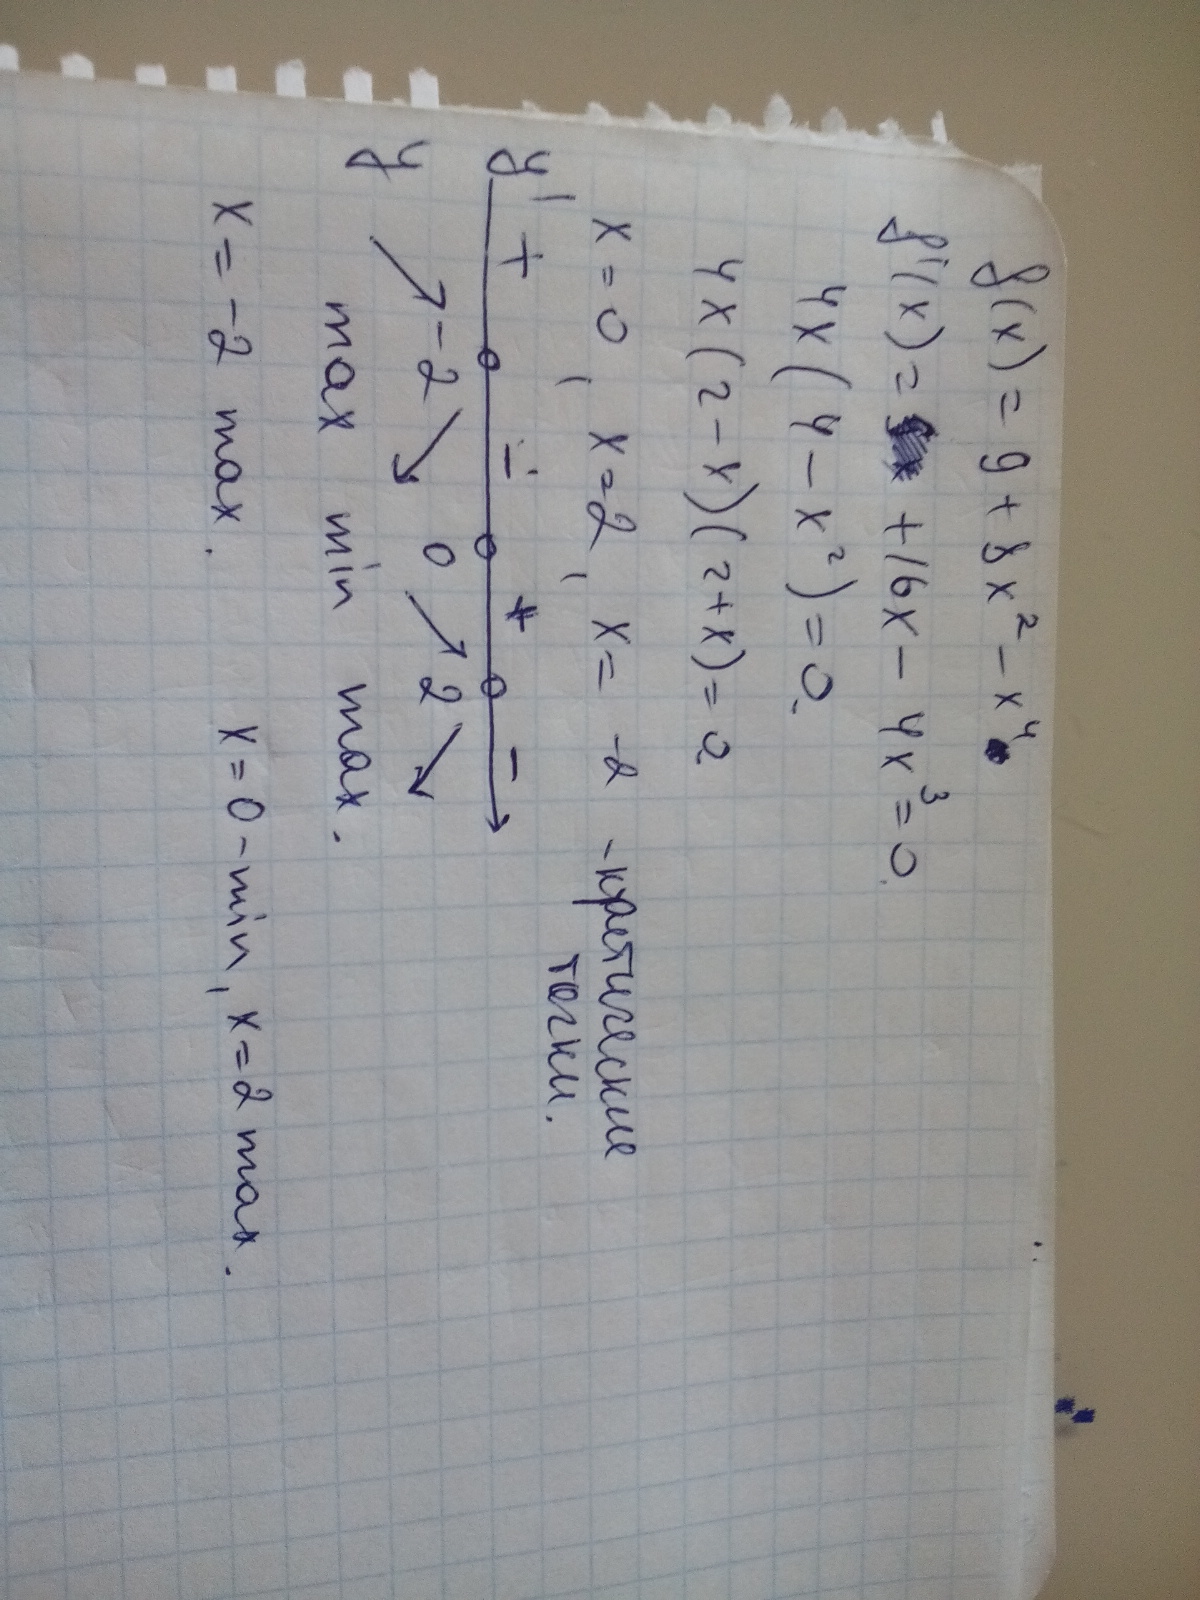 f(x) = 9 + 8x² - x⁴
f'(x) = + 16x - 4x³ = 0.
4x (4 - x²) = 0.
4x (2 - x)(2 + x) = 0
x = 0, x = 2, x = -2 - критические
точки.
y' + - + -
y -2 0 2
max min max.
x = -2 max. x = 0 - min, x = 2 max.